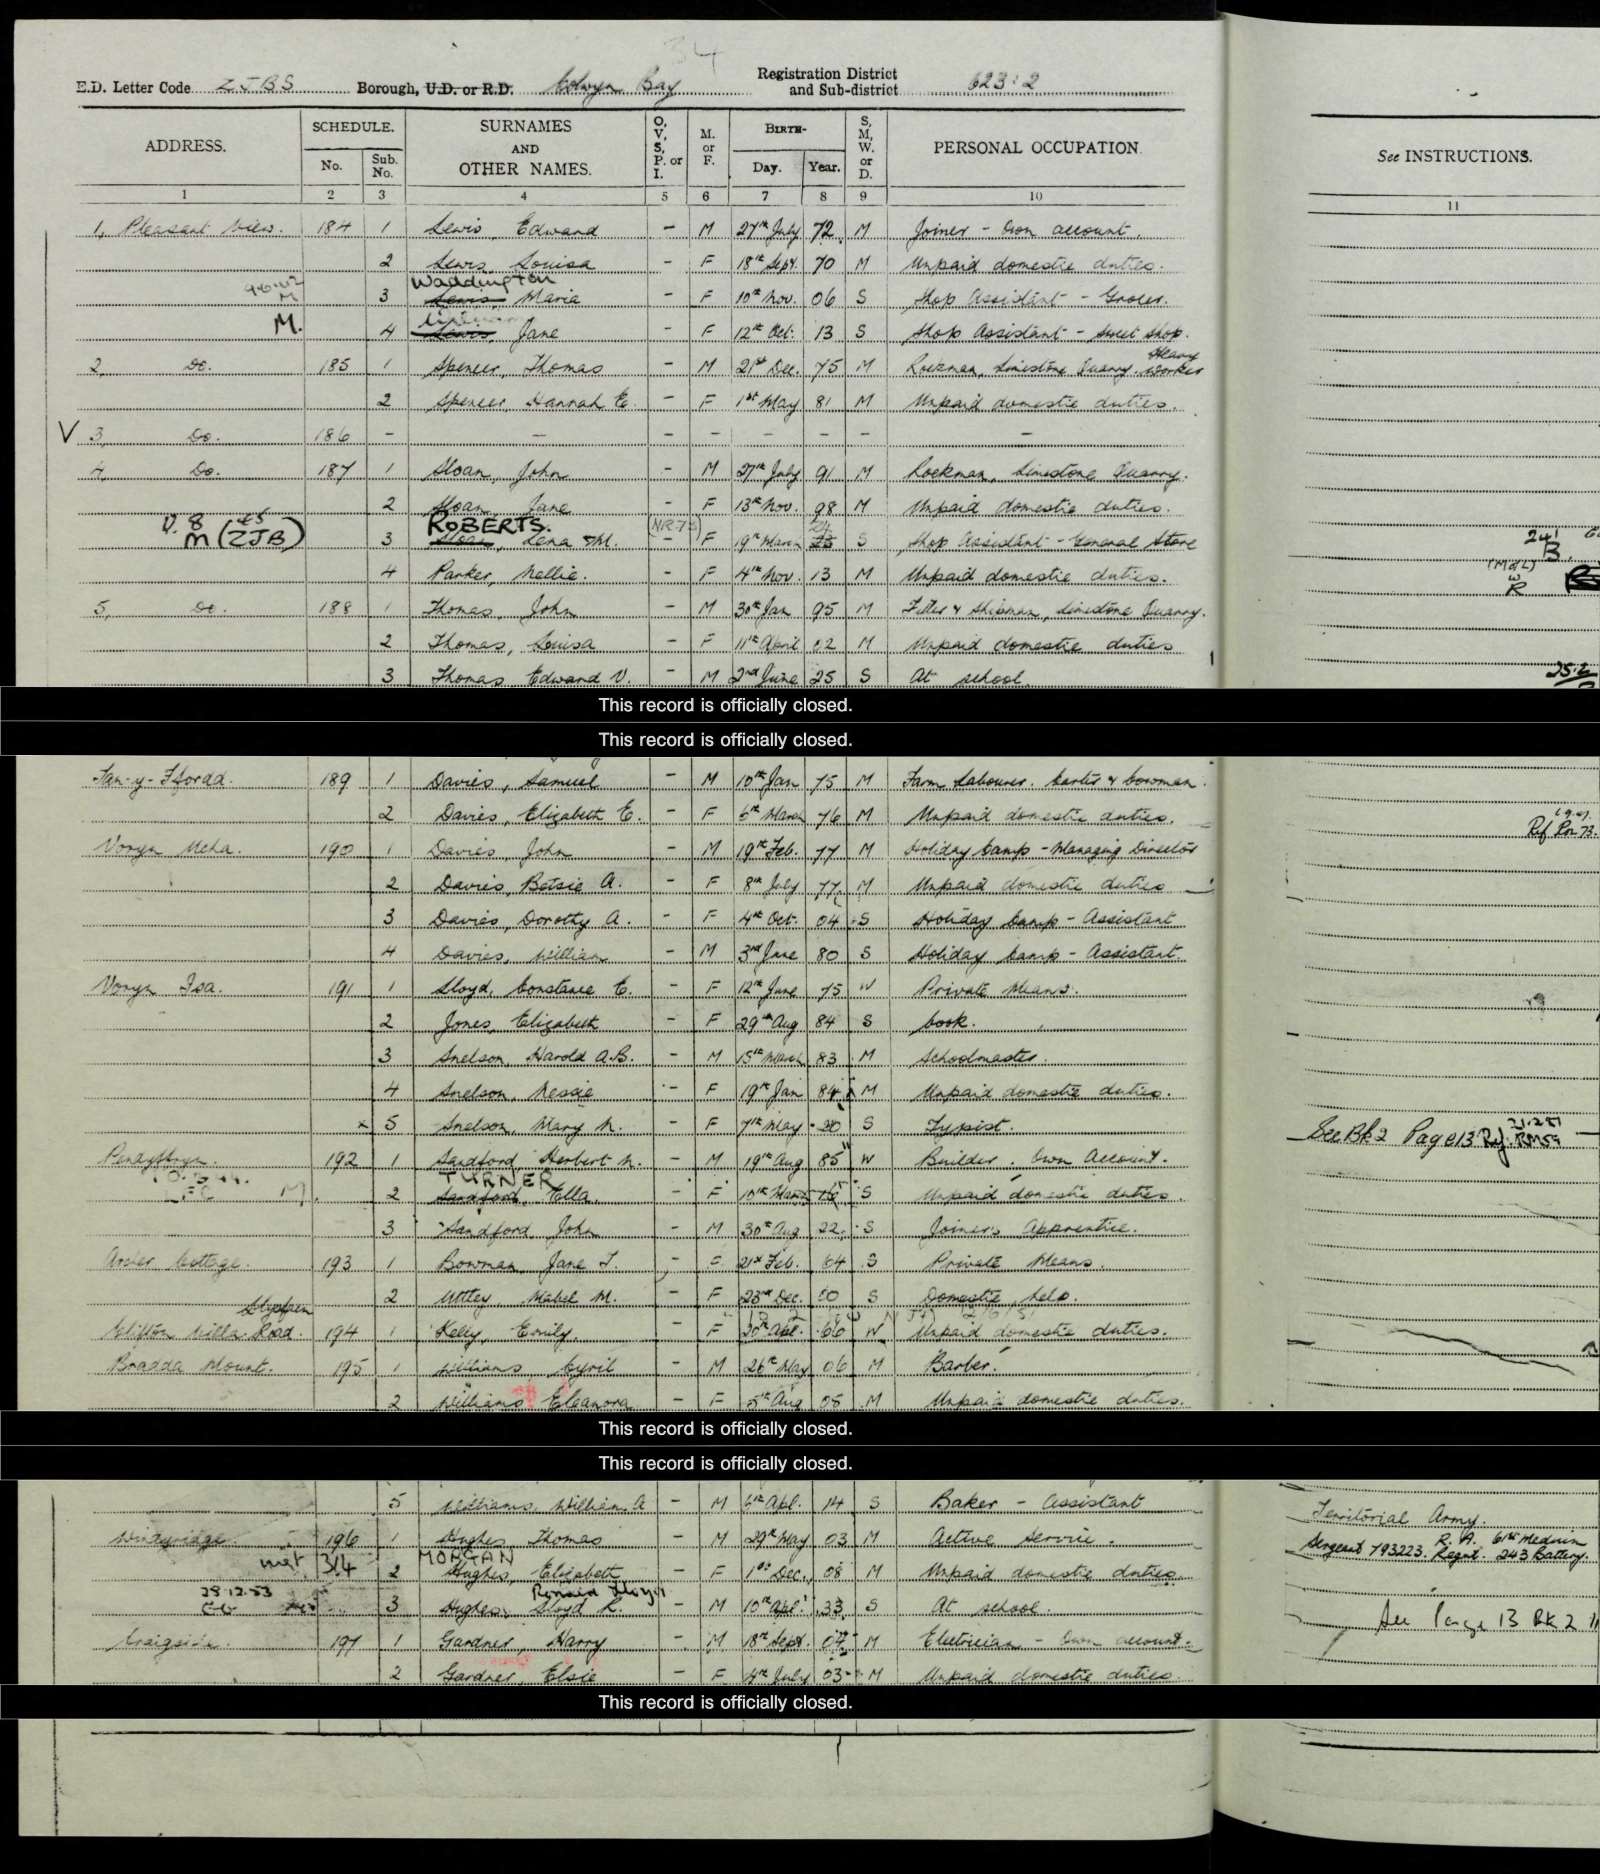 34
E.D. Letter Code ZJBS Borough, U.D. or R.D. Colwyn Bay Registration District and Sub-district 623:2
ADDRESS. SCHEDULE. No. Sub. No. SURNAMES AND OTHER NAMES. O, V, S, P. or I. M. or F. BIRTH- Day. Year. S, M, W. or D. PERSONAL OCCUPATION See INSTRUCTIONS.
1 2 3 4 5 6 7 8 9 10 11
1, Pleasant View. 184 1 Lewis, Edward - M 27th July 72 M Joiner - Own account.
2 Lewis, Louisa - F 18th Sept. 70 M Unpaid domestic duties.
Waddington
M 3 Lewis Maria - F 10th Nov. 06 S Shop Assistant - Grocer.
M. 4 Lewis, Jane - F 12th Oct. 13 S Shop Assistant - Sweet Shop.
2, Do. 185 1 Spencer, Thomas - M 21st Dec. 75 M Rockman, Limestone Quarry. Heavy Worker
2 Spencer, Hannah E. - F 1st May 81 M Unpaid domestic duties.
V 3, Do. 186 - - - - - - - -
4, Do. 187 1 Sloan, John - M 27th July 91 M Rockman, Limestone Quarry.
2 Sloan, Jane - F 13th Nov. 98 M Unpaid domestic duties.
V. 8 ROBERTS. (NR73) 24
M (ZJB) 3 Sloan, Lena M. - F 19th March S Shop Assistant - General Store 241 B.
4 Parker, Nellie. - F 4th Nov. 13 M Unpaid domestic duties. R
5, Do. 188 1 Thomas, John - M 30th Jan 95 M Fitter & Shipman, Limestone Quarry.
2 Thomas, Louisa - F 11th April 02 M Unpaid domestic duties
3 Thomas, Edward V. - M 2nd June 25 S At school. 25.2
This record is officially closed.
This record is officially closed.
Tan-y-Ffordd. 189 1 Davies, Samuel - M 10th Jan 75 M Farm Labourer. Carter & Cowman.
2 Davies, Elizabeth E. - F 6th March 76 M Unpaid domestic duties.
Voryn Ucha. 190 1 Davies, John - M 19th Feb. 77 M Holiday Camp - Managing Director
2 Davies, Betsie A. - F 8th July 77 M Unpaid domestic duties
3 Davies, Dorothy A. - F 4th Oct. 04 S Holiday Camp - Assistant
4 Davies, William - M 3rd June 80 S Holiday Camp - Assistant.
Voryn Isa. 191 1 Lloyd, Constance E. - F 12th June 75 W Private Means.
2 Jones, Elizabeth - F 29th Aug 84 S Cook.
3 Snelson, Harold A.B. - M 15th March 83 M Schoolmaster.
4 Snelson, Nessie - F 19th Jan 84 M Unpaid domestic duties.
x 5 Snelson, Mary N. - F 7th May 20 S Typist. See Bk 2 Page 13 Rf. RM59
192 1 Sandford, Herbert N. - M 19th Aug 85 W Builder. Own Account.
TURNER
M 2 Sandford, Ella. - F 10th March 16 S Unpaid domestic duties.
3 Sandford, John - M 30th Aug 22 S Joiners Apprentice.
Arder Cottage. 193 1 Bowman, Jane T. - F 21st Feb. 64 S Private Means.
2 Uttley, Mabel M. - F 23rd Dec. 00 S Domestic help.
Clifton Villa Road. 194 1 Kelly, Emily. - F 20th Apl. 66 W Unpaid domestic duties.
Bradda Mount. 195 1 Williams Cyril - M 26th May 06 M Barber.
2 Williams Eleanora - F 5th Aug 05 M Unpaid domestic duties.
This record is officially closed.
This record is officially closed.
5 Williams, William A - M 6th Apl. 14 S Baker - Assistant Territorial Army.
Windyridge. 196 1 Hughes, Thomas - M 29th May 03 M Active Service. Sergeant 793223. R.A. 61st Medium Regnt. 243 Battery.
MORGAN
314 2 Hughes, Elizabeth - F 1st Dec. 08 M Unpaid domestic duties.
28.12.53 Ronald Lloyd
3 Hughes, Lloyd R. - M 10th Apl. 33 S At school. See Page 13 BK 2
Craigside. 197 1 Gardner, Harry - M 18th Sept. 04 M Electrician - Own account.
2 Gardner, Elsie - F 4th July 03 M Unpaid domestic duties.
This record is officially closed.